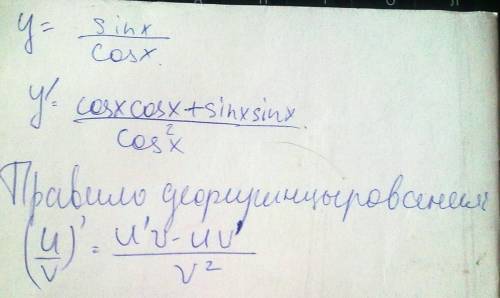 y = sinx / cosx.
y' = cosxcosx + sinxsinx / cos²x
Правило дефиринцырования
(u/v)' = u'v - uv' / v²